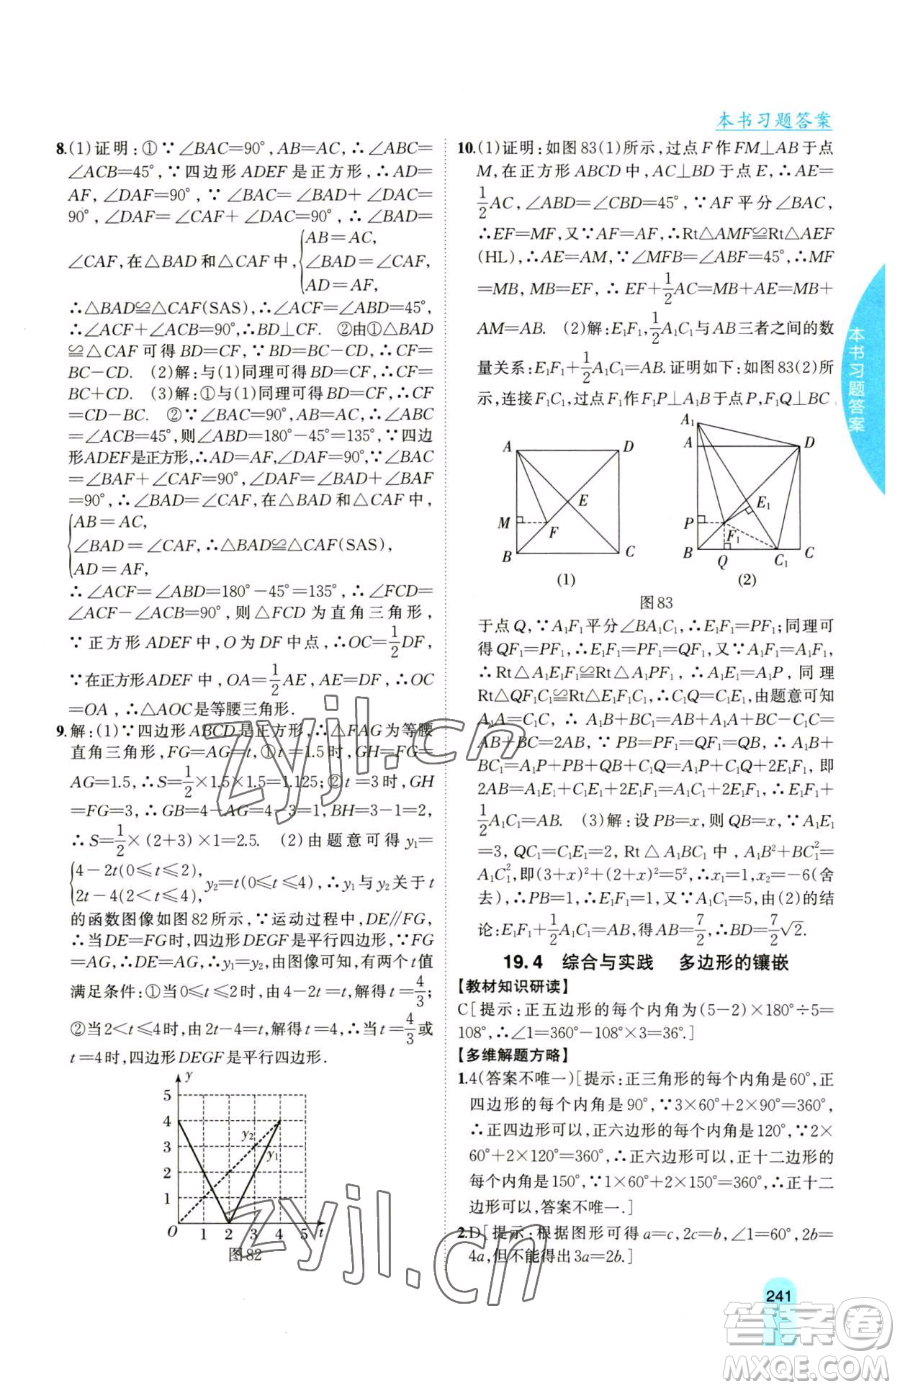 本书习题答案
8.(1)证明:①∵∠BAC=90°,AB=AC,∴∠ABC
=∠ACB=45°,∵四边形ADEF是正方形,∴AD=
AF,∠DAF=90°,∵∠BAC=∠BAD+∠DAC=
90°,∠DAF=∠CAF+∠DAC=90°,∴∠BAD=
∠CAF,在△BAD和△CAF中,{AB=AC,
∠BAD=∠CAF,
AD=AF,
∴△BAD≌△CAF(SAS),∴∠ACF=∠ABD=45°,
∴∠ACF+∠ACB=90°,∴BD⊥CF. ②由①△BAD
≌△CAF可得BD=CF,∵BD=BC-CD,∴CF=
BC-CD. (2)解:与(1)同理可得BD=CF,∴CF=
BC+CD. (3)解:①与(1)同理可得BD=CF,∴CF
=CD-BC. ②∵∠BAC=90°,AB=AC,∴∠ABC
=∠ACB=45°,则∠ABD=180°-45°=135°,∵四边
形ADEF是正方形,∴AD=AF,∠DAF=90°,∵∠BAC
=∠BAF+∠CAF=90°,∠DAF=∠BAD+∠BAF
=90°,∴∠BAD=∠CAF,在△BAD和△CAF中,
{AB=AC,
∠BAD=∠CAF,∴△BAD≌△CAF(SAS),
AD=AF,
∴∠ACF=∠ABD=180°-45°=135°,∴∠FCD=
∠ACF-∠ACB=90°,则△FCD为直角三角形,
∵正方形ADEF中,O为DF中点,∴OC=1/2DF,
∵在正方形ADEF中,OA=1/2AE,AE=DF,∴OC=
OA,∴△AOC是等腰三角形.
9.解:(1)∵四边形ABCD是正方形,∴△FAG为等腰
直角三角形,FG=AG=t,①t=1.5时,GH=FG=
AG=1.5,∴S=1/2×1.5×1.5=1.125;②t=3时,GH
=FG=3,∴GB=4-AG=4-3=1,BH=3-1=2,
∴S=1/2×(2+3)×1=2.5. (2)由题意可得y₁=
{4-2t(0≤t≤2),
2t-4(2<t≤4),y₂=t(0≤t≤4),∴y₁与y₂关于t
的函数图像如图82所示,∵运动过程中,DE∥FG,
∴当DE=FG时,四边形DEGF是平行四边形,∵FG
=AG=t,∴DE=FG=t,∴y₁=y₂,由图有两个t值
满足条件:①当0≤t≤2时,4-2t=t,解得t=4/3;
②当2<t≤4时,2t-4=t,解得t=4,∴当t=4/3或
t=4时,四边形DEGF是平行四边形.
y
5
4
3
2
1
O 1 2 3 4 5 t
y₂
y₁
图82
10.(1)证明:如图83(1)所示,过点F作FM⊥AB于点
M,在正方形ABCD中,AC⊥BD于点E,∴AE=
1/2AC,∠ABD=∠CBD=45°,∵AF平分∠BAC,
∴EF=MF,又∵AF=AF,∴Rt△AMF≌Rt△AEF
(HL),∴AE=AM,∵∠MFB=∠ABF=45°,∴MF
=MB,MB=EF,∴EF+1/2AC=MB+AE=MB+
AM=AB. (2)解:E₁F₁,1/2A₁C₁与AB三者之间的数
量关系:E₁F₁+1/2A₁C₁=AB.证明如下:如图83(2)所
示,连接F₁C₁,过点F₁作F₁P⊥A₁B于点P,F₁Q⊥BC
A D E M F B C
(1)
A₁ A D E₁ P F₁ B Q C₁ C
(2)
图83
于点Q,∵A₁F₁平分∠BA₁C₁,∴E₁F₁=PF₁;同理可
得QF₁=PF₁,∴E₁F₁=PF₁=QF₁,又∵A₁F₁=A₁F₁,
∴Rt△A₁E₁F₁≌Rt△A₁PF₁,∴A₁E₁=A₁P,同理
Rt△QF₁C₁≌Rt△E₁F₁C₁,∴C₁Q=C₁E₁,由题意可知
A₁A=C₁C,∴A₁B+BC₁=AB+A₁A+BC-C₁C=
AB+BC=2AB,∵PB=PF₁=QF₁=QB,∴A₁B+
BC₁=A₁P+PB+QB+C₁Q=A₁P+C₁Q+2E₁F₁,即
2AB=A₁E₁+C₁E₁+2E₁F₁=A₁C₁+2E₁F₁,∴E₁F₁+
1/2A₁C₁=AB. (3)解:设PB=x,则QB=x,∵A₁E₁
=3,QC₁=C₁E₁=2,Rt△A₁BC₁中,A₁B²+BC₁²=
A₁C₁²,即(3+x)²+(2+x)²=5²,∴x₁=1,x₂=-6(舍
去),∴PB=1,∴E₁F₁=1,又∵A₁C₁=5,由(2)的结
论:E₁F₁+1/2A₁C₁=AB,得AB=7/2,∴BD=7/2√2.
19.4 综合与实践 多边形的镶嵌
【教材知识研读】
C[提示:正五边形的每个内角为(5-2)×180°÷5=
108°,∴∠1=360°-108°×3=36°.]
【多维解题方略】
1.4(答案不唯一)[提示:正三角形的每个内角是60°,正
四边形的每个内角是90°,∵3×60°+2×90°=360°,
∴正四边形可以,正六边形的每个内角是120°,∵2×
60°+2×120°=360°,∴正六边形可以,正十二边形的
每个内角是150°,∵1×60°+2×150°=360°,∴正十二
边形可以,答案不唯一.]
2.D[提示:根据图形可得a=c,2c=b,∠1=60°,2b=
4a,但不能得出3a=2b.]
本书习题答案
241
zyjl.cn
zyjl.cn
答案圈
MXQE.COM